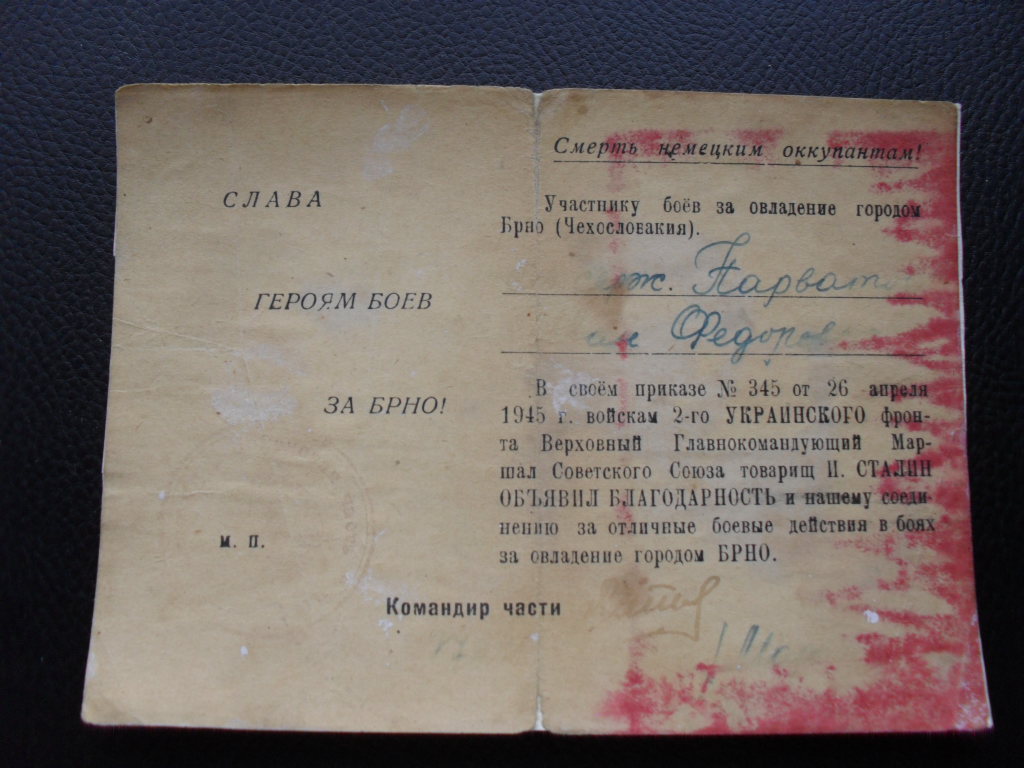 СЛАВА
ГЕРОЯМ БОЕВ
ЗА БРНО!
М. П.
Смерть немецким оккупантам!
Участнику боёв за овладение городом
Брно (Чехословакия).
В своём приказе № 345 от 26 апреля
1945 г. войскам 2-го УКРАИНСКОГО фрон-
та Верховный Главнокомандующий Мар-
шал Советского Союза товарищ И. СТАЛИН
ОБЪЯВИЛ БЛАГОДАРНОСТЬ и нашему соеди-
нению за отличные боевые действия в боях
за овладение городом БРНО.
Командир части